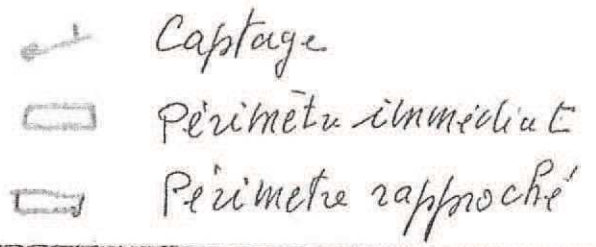 Captage
Périmètre immédiat
Périmètre rapproché